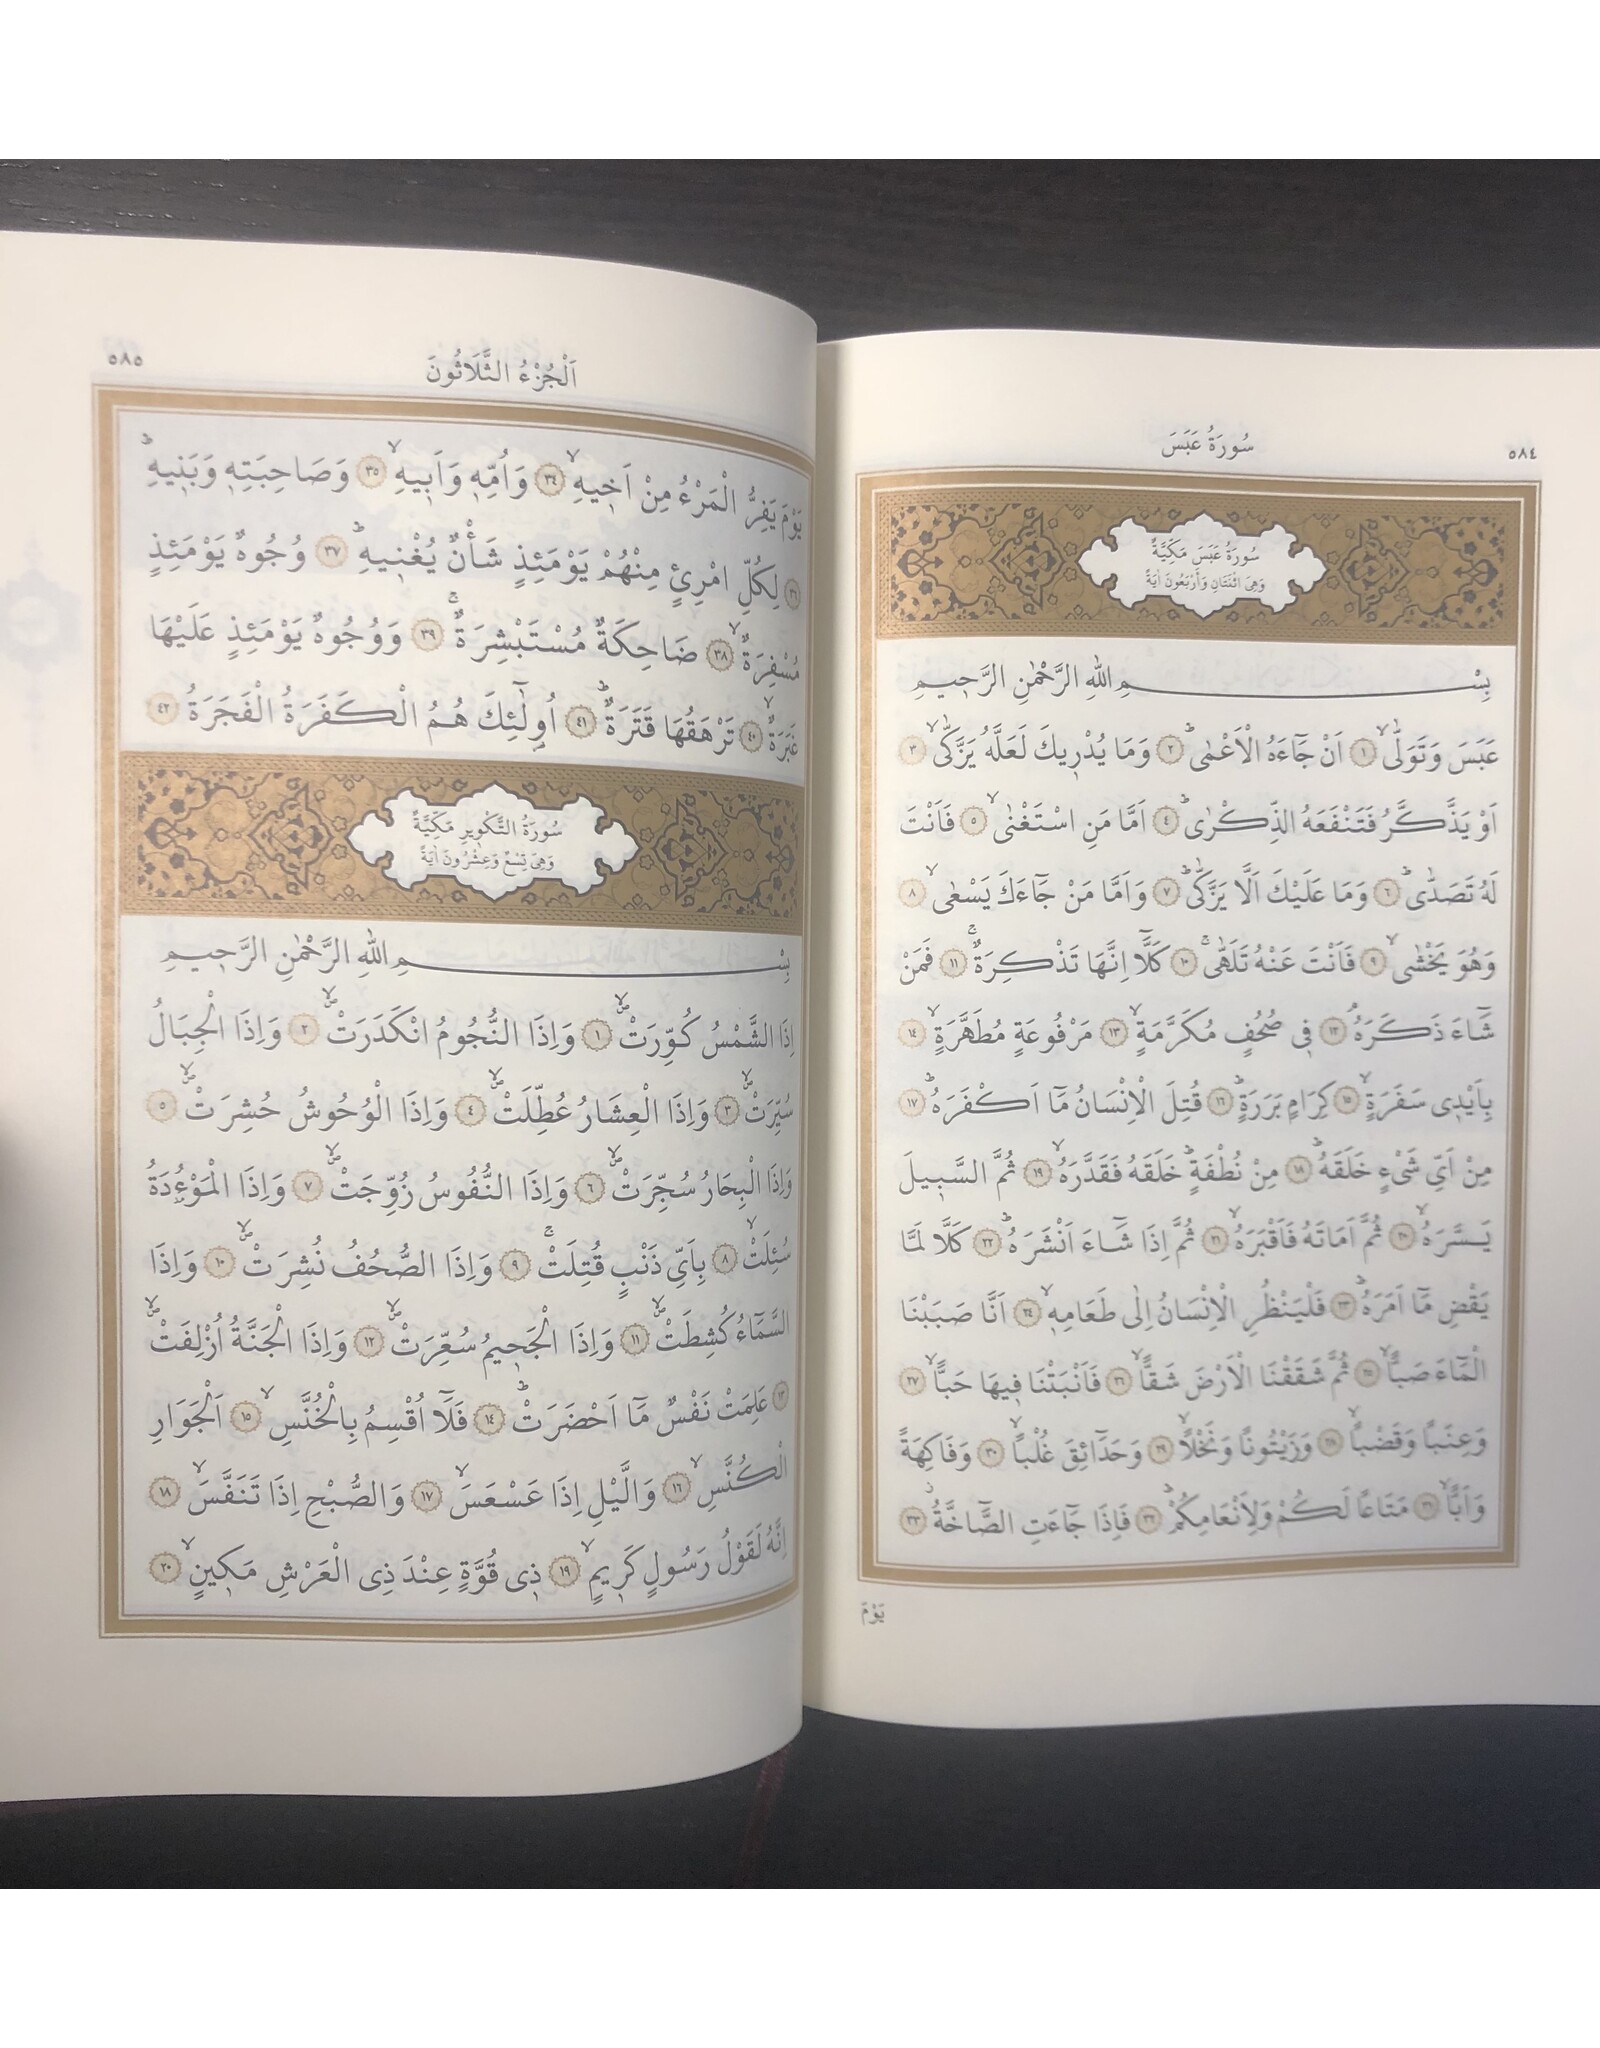 ٥٨٤
سُورَةُ عَبَسَ
سُورَةُ عَبَسَ مَكِّيَّةٌ
وَهِيَ اثْنَتَانِ وَأَرْبَعُونَ اٰيَةً
بِسْمِ اللّٰهِ الرَّحْمٰنِ الرَّحٖيمِ
عَبَسَ وَتَوَلّٰىۙ ﴿١﴾ اَنْ جَٓاءَهُ الْاَعْمٰىۜ ﴿٢﴾ وَمَا يُدْرٖيكَ لَعَلَّهُ يَزَّكّٰىۙ ﴿٣﴾
اَوْ يَذَّكَّرُ فَتَنْفَعَهُ الذِّكْرٰىۜ ﴿٤﴾ اَمَّا مَنِ اسْتَغْنٰىۙ ﴿٥﴾ فَاَنْتَ
لَهُ تَصَدّٰىۜ ﴿٦﴾ وَمَا عَلَيْكَ اَلَّا يَزَّكّٰىۜ ﴿٧﴾ وَاَمَّا مَنْ جَٓاءَكَ يَسْعٰىۙ ﴿٨﴾
وَهُوَ يَخْشٰىۙ ﴿٩﴾ فَاَنْتَ عَنْهُ تَلَهّٰىۚ ﴿١٠﴾ كَلَّٓا اِنَّهَا تَذْكِرَةٌۚ ﴿١١﴾ فَمَنْ
شَٓاءَ ذَكَرَهُۢ ﴿١٢﴾ فٖي صُحُفٍ مُكَرَّمَةٍۙ ﴿١٣﴾ مَرْفُوعَةٍ مُطَهَّرَةٍۙ ﴿١٤﴾
بِاَيْدٖي سَفَرَةٍۙ ﴿١٥﴾ كِرَامٍ بَرَرَةٍۜ ﴿١٦﴾ قُتِلَ الْاِنْسَانُ مَٓا اَكْفَرَهُۜ ﴿١٧﴾
مِنْ اَيِّ شَيْءٍ خَلَقَهُۜ ﴿١٨﴾ مِنْ نُطْفَةٍۜ خَلَقَهُ فَقَدَّرَهُۙ ﴿١٩﴾ ثُمَّ السَّبٖيلَ
يَسَّرَهُۙ ﴿٢٠﴾ ثُمَّ اَمَاتَهُ فَاَقْبَرَهُۙ ﴿٢١﴾ ثُمَّ اِذَا شَٓاءَ اَنْشَرَهُۜ ﴿٢٢﴾ كَلَّا لَمَّا
يَقْضِ مَٓا اَمَرَهُۜ ﴿٢٣﴾ فَلْيَنْظُرِ الْاِنْسَانُ اِلٰى طَعَامِهٖۙ ﴿٢٤﴾ اَنَّا صَبَبْنَا
الْمَٓاءَ صَبّاًۙ ﴿٢٥﴾ ثُمَّ شَقَقْنَا الْاَرْضَ شَقّاًۙ ﴿٢٦﴾ فَاَنْبَتْنَا فٖيهَا حَبّاًۙ ﴿٢٧﴾
وَعِنَباً وَقَضْباًۙ ﴿٢٨﴾ وَزَيْتُوناً وَنَخْلاًۙ ﴿٢٩﴾ وَحَدَٓائِقَ غُلْباًۙ ﴿٣٠﴾ وَفَاكِهَةً
وَاَبّاًۙ ﴿٣١﴾ مَتَاعاً لَكُمْ وَلِاَنْعَامِكُمْۜ ﴿٣٢﴾ فَاِذَا جَٓاءَتِ الصَّٓاخَّةُۘ ﴿٣٣﴾
يَوْمَ
٥٨٥
اَلْجُزْءُ الثَّلَاثُونَ
يَوْمَ يَفِرُّ الْمَرْءُ مِنْ اَخٖيهِۙ ﴿٣٤﴾ وَاُمِّهٖ وَاَبٖيهِۙ ﴿٣٥﴾ وَصَاحِبَتِهٖ وَبَنٖيهِۜ
﴿٣٦﴾ لِكُلِّ امْرِئٍ مِنْهُمْ يَوْمَئِذٍ شَأْنٌ يُغْنٖيهِۜ ﴿٣٧﴾ وُجُوهٌ يَوْمَئِذٍ
مُسْفِرَةٌۙ ﴿٣٨﴾ ضَاحِكَةٌ مُسْتَبْشِرَةٌۚ ﴿٣٩﴾ وَوُجُوهٌ يَوْمَئِذٍ عَلَيْهَا
غَبَرَةٌۙ ﴿٤٠﴾ تَرْهَقُهَا قَتَرَةٌۜ ﴿٤١﴾ اُو۬لٰٓئِكَ هُمُ الْكَفَرَةُ الْفَجَرَةُ ﴿٤٢﴾
سُورَةُ التَّكْوٖيرِ مَكِّيَّةٌ
وَهِيَ تِسْعٌ وَعِشْرُونَ اٰيَةً
بِسْمِ اللّٰهِ الرَّحْمٰنِ الرَّحٖيمِ
اِذَا الشَّمْسُ كُوِّرَتْۙࣕ ﴿١﴾ وَاِذَا النُّجُومُ انْكَدَرَتْۙࣕ ﴿٢﴾ وَاِذَا الْجِبَالُ
سُيِّرَتْۙࣕ ﴿٣﴾ وَاِذَا الْعِشَارُ عُطِّلَتْۙࣕ ﴿٤﴾ وَاِذَا الْوُحُوشُ حُشِرَتْۙࣕ ﴿٥﴾
وَاِذَا الْبِحَارُ سُجِّرَتْۙࣕ ﴿٦﴾ وَاِذَا النُّفُوسُ زُوِّجَتْۙࣕ ﴿٧﴾ وَاِذَا الْمَوْءُ۫دَةُ
سُئِلَتْۙ ﴿٨﴾ بِاَيِّ ذَنْبٍ قُتِلَتْۚ ﴿٩﴾ وَاِذَا الصُّحُفُ نُشِرَتْۙࣕ ﴿١٠﴾ وَاِذَا
السَّمَٓاءُ كُشِطَتْۙࣕ ﴿١١﴾ وَاِذَا الْجَحٖيمُ سُعِّرَتْۙࣕ ﴿١٢﴾ وَاِذَا الْجَنَّةُ اُزْلِفَتْۙࣕ
﴿١٣﴾ عَلِمَتْ نَفْسٌ مَٓا اَحْضَرَتْۜ ﴿١٤﴾ فَلَٓا اُقْسِمُ بِالْخُنَّسِۙ ﴿١٥﴾ اَلْجَوَارِ
الْكُنَّسِۙ ﴿١٦﴾ وَالَّيْلِ اِذَا عَسْعَسَۙ ﴿١٧﴾ وَالصُّبْحِ اِذَا تَنَفَّسَۙ ﴿١٨﴾
اِنَّهُ لَقَوْلُ رَسُولٍ كَرٖيمٍۙ ﴿١٩﴾ ذٖي قُوَّةٍ عِنْدَ ذِي الْعَرْشِ مَكٖينٍۙ ﴿٢٠﴾